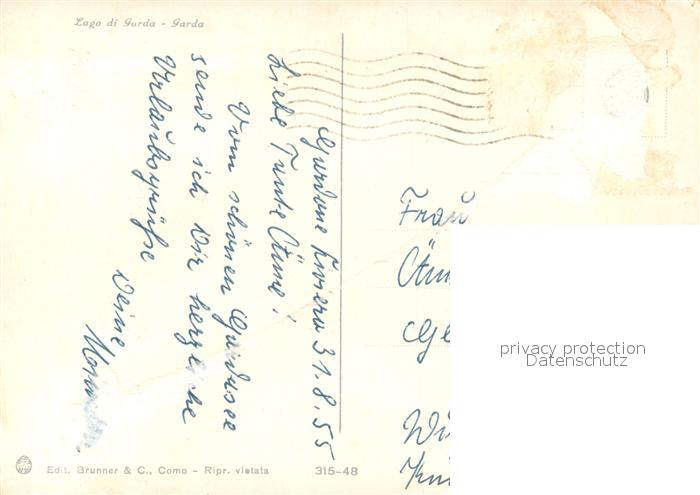 Lago di Garda - Garda
Gardone Riviera 31.8.55
Liebe Tante Änne!
Vom schönen Gardasee
sende ich Dir herzliche
Urlaubsgrüße
Deine
Frau
Än
Ge
privacy protection
Datenschutz
Wi
Edit. Brunner & C., Como - Ripr. vietata
315-48